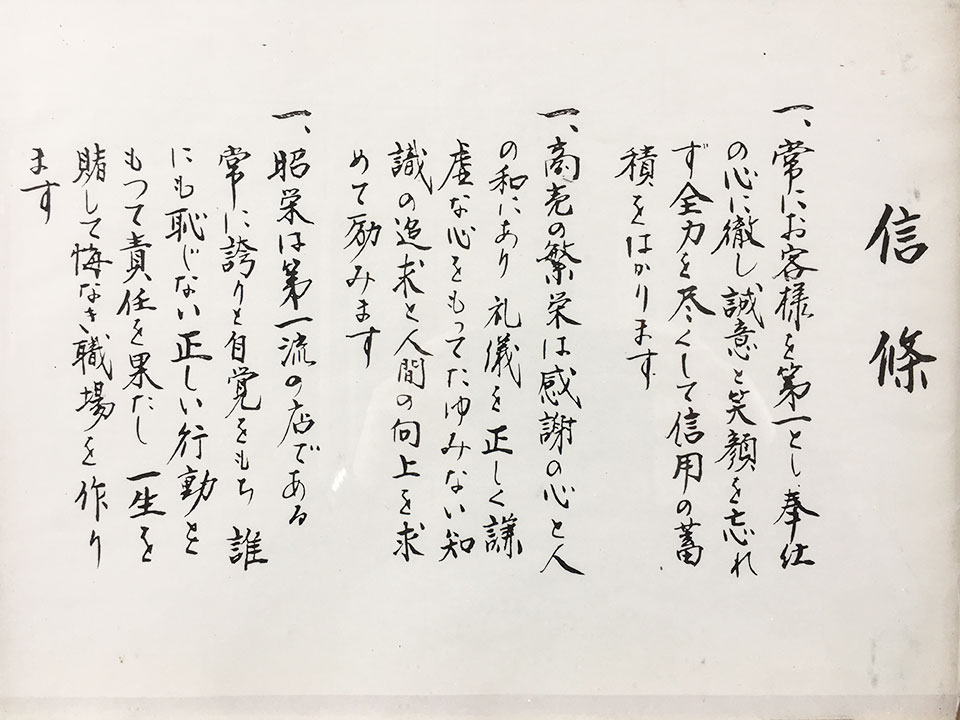 信條
一、常にお客様を第一とし奉仕
の心に徹し誠意と笑顔を忘れ
ず全力を尽くして信用の蓄
積をはかります
一、商売の繁栄は感謝の心と人
の和にあり礼儀を正しく謙
虚な心をもってたゆみない知
識の追求と人間の向上を求
めて励みます
一、昭栄は第一流の店である
常に誇りと自覚をもち誰
にも恥じない正しい行動を
もって責任を果たし一生を
賭して悔なき職場を作り
ます